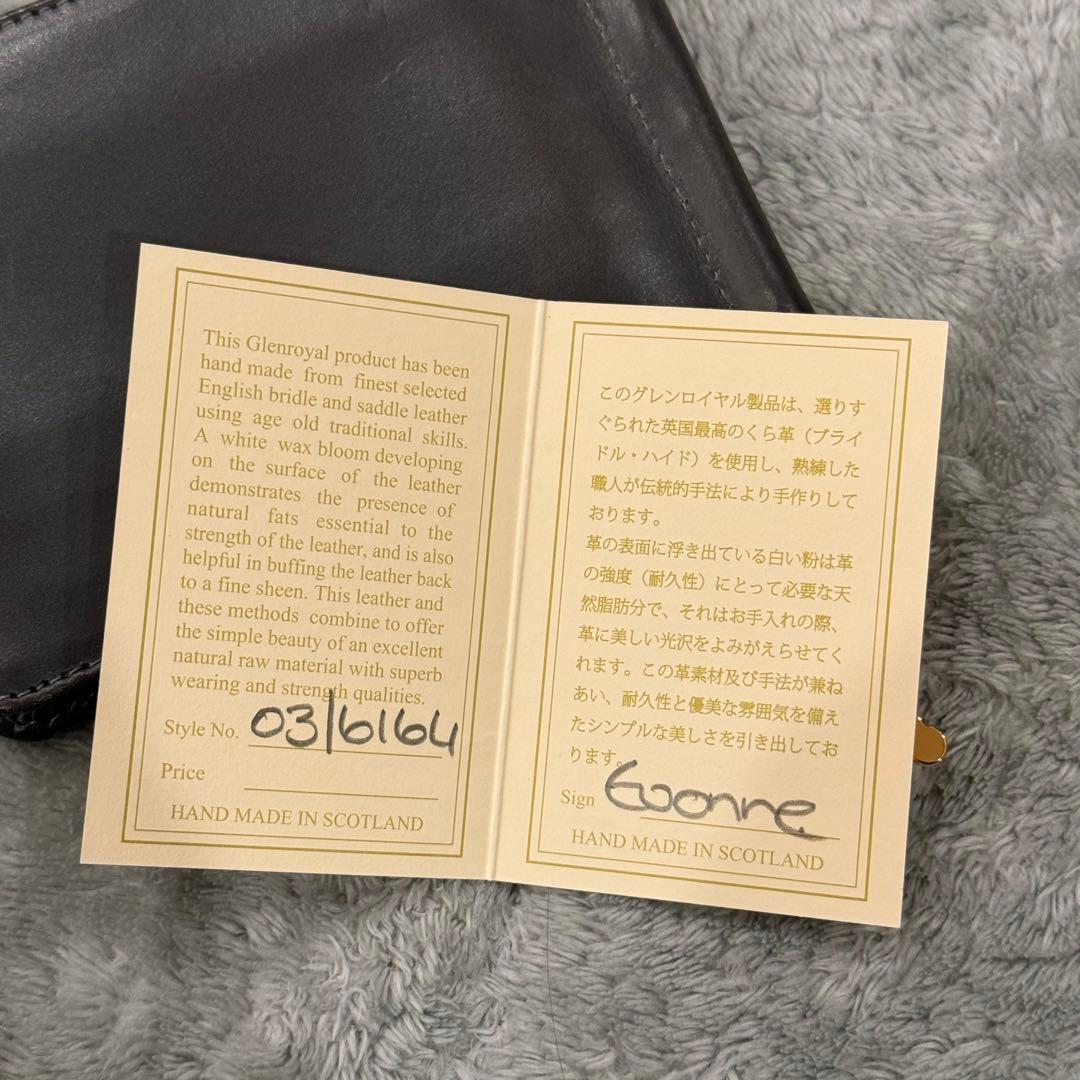 This Glenroyal product has been
hand made from finest selected
English bridle and saddle leather
using age old traditional skills.
A white wax bloom developing
on the surface of the leather
demonstrates the presence of
natural fats essential to the
strength of the leather, and is also
helpful in buffing the leather back
to a fine sheen. This leather and
these methods combine to offer
the simple beauty of an excellent
natural raw material with superb
wearing and strength qualities.
Style No. 03/6164
Price
HAND MADE IN SCOTLAND
このグレンロイヤル製品は、選りす
ぐられた英国最高のくら革（ブライ
ドル・ハイド）を使用し、熟練した
職人が伝統的手法により手作りして
おります。
革の表面に浮き出ている白い粉は革
の強度（耐久性）にとって必要な天
然脂肪分で、それはお手入れの際、
革に美しい光沢をよみがえらせてく
れます。この革素材及び手法が兼ね
あい、耐久性と優美な雰囲気を備え
たシンプルな美しさを引き出してお
ります。
Sign Evonne
HAND MADE IN SCOTLAND